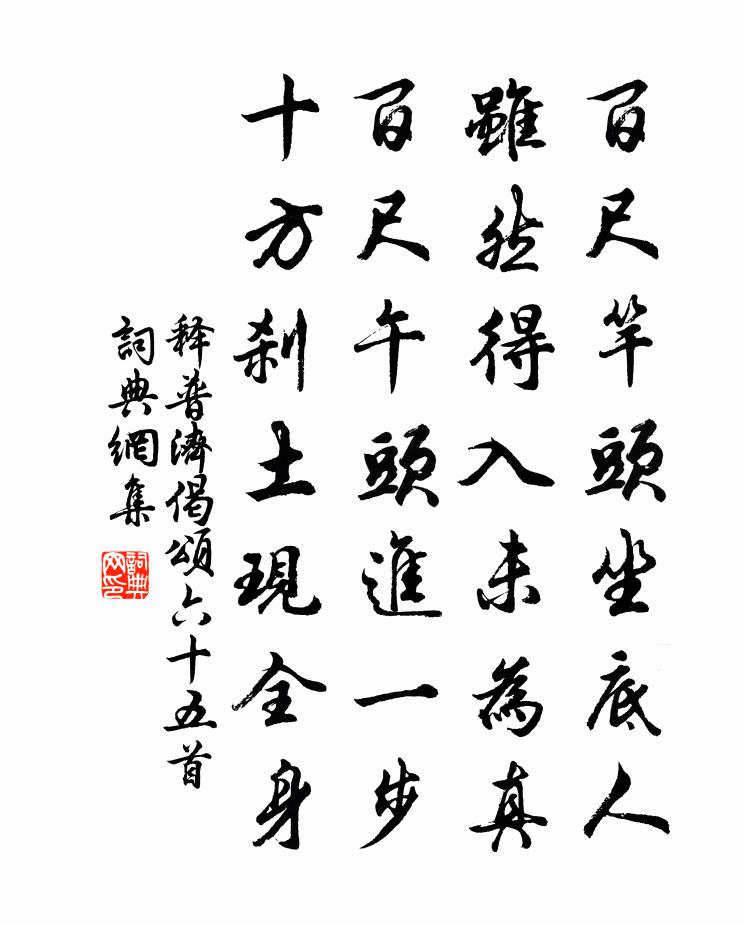 百尺竿頭坐底人
雖然得入未為真
百尺午頭進一步
十方刹土現全身
释普濟偈頌六十五首
詞典網集
詞典
网印